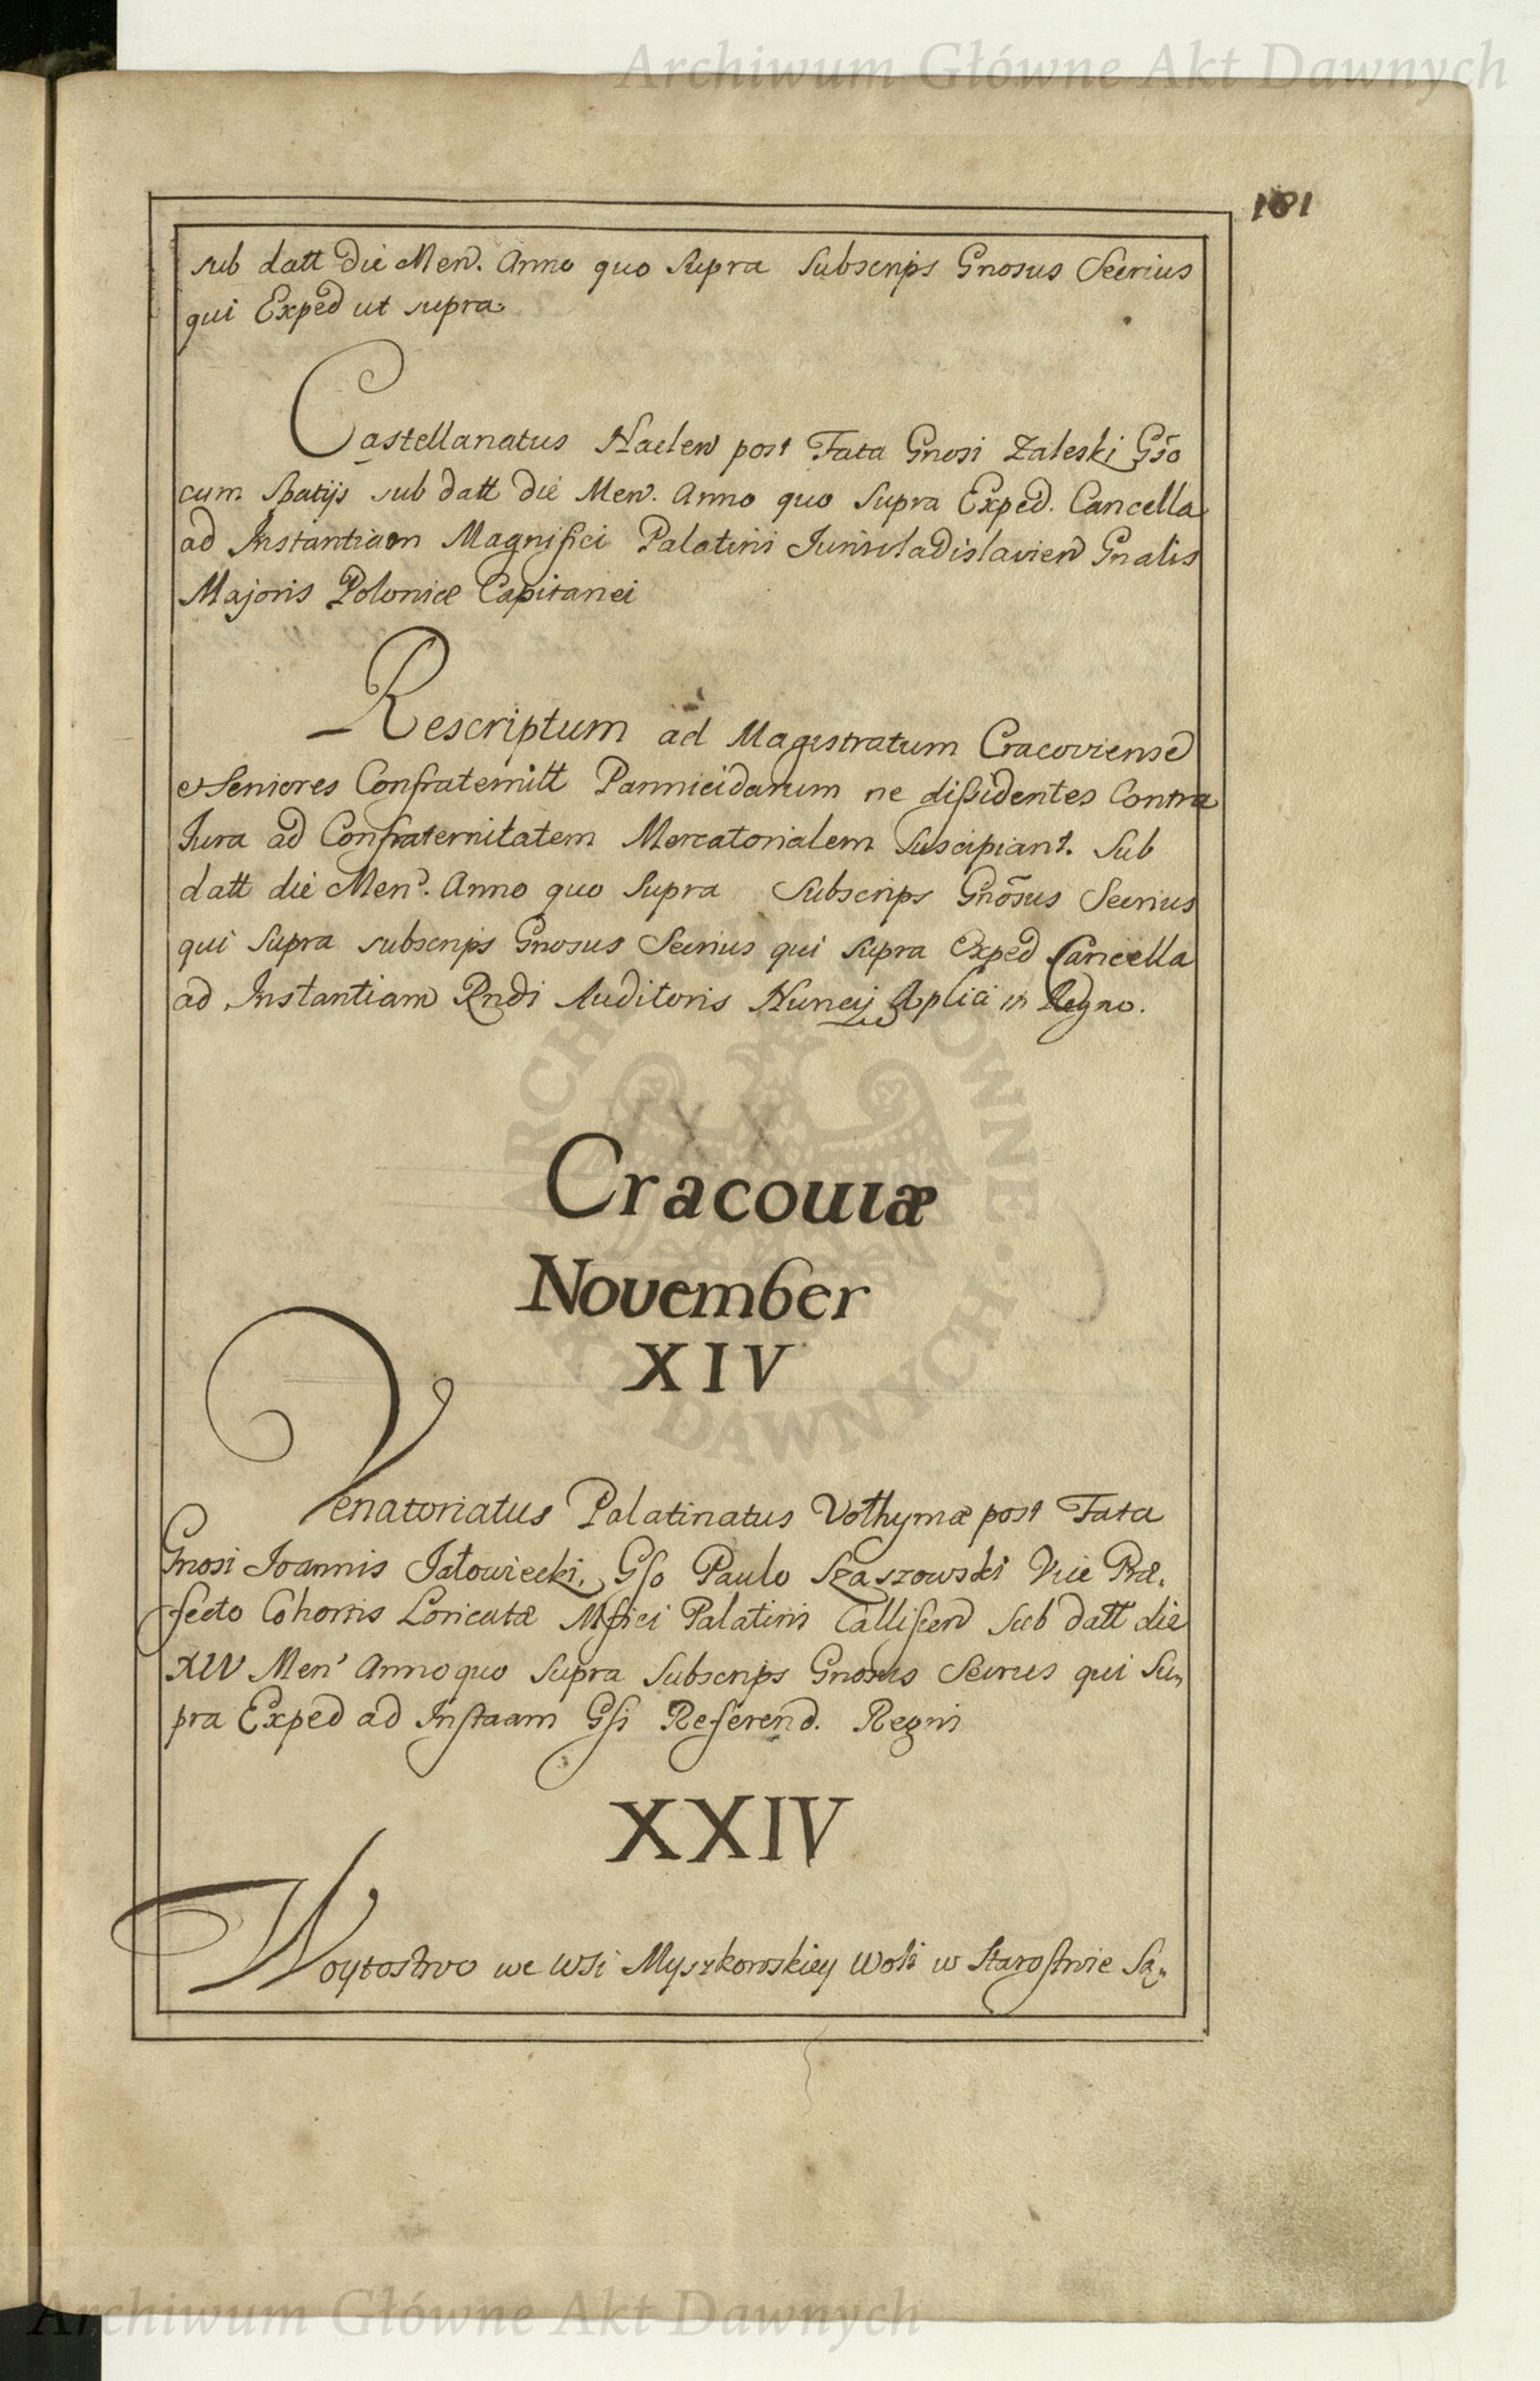 Archiwum Główne Akt Dawnych
181
sub datt die Men. Anno quo supra Subscrips Gnosus Secrius
qui Exped ut supra
Castellanatus Naclen post Fata Gnosi Zaleski Gso
cum Spatijs sub datt die Men. Anno quo Supra Exped. Cancella
ad Instantiam Magnifici Palatini Iuniuladislavien Gnalis
Majoris Poloniæ Capitanei
Rescriptum ad Magistratum Cracoviense
et Seniores Confraternitt Pannicidarum ne dissidentes Contra
Iura ad Confraternitatem Mercatorialem Suscipiant. Sub
datt die Men. Anno quo Supra Subscrips Gnosus Secrius
qui Supra subscrips Gnosus Secrius qui supra Exped Cancella
ad Instantiam Rndi Auditoris Nuncij Aplici in Regno.
Cracouiæ
November
XIV
Venatoriatus Palatinatus Volhyniæ post Fata
Gnosi Joannis Jałowiecki, Gso Paulo Szaszowski Vice Præ,
fecto Cohortis Loricatæ Mfici Palatini Callissen Sub datt die
XIV Men Anno quo Supra Subscrips Gnosus Secrius qui Su,,
pra Exped ad Instaam Gsi Referend. Regni
XXIV
Woytostwo we Wsi Myszkowskiey Woli w Starostwie Są,,
ARCHIWUM GŁÓWNE AKT DAWNYCH
Archiwum Główne Akt Dawnych